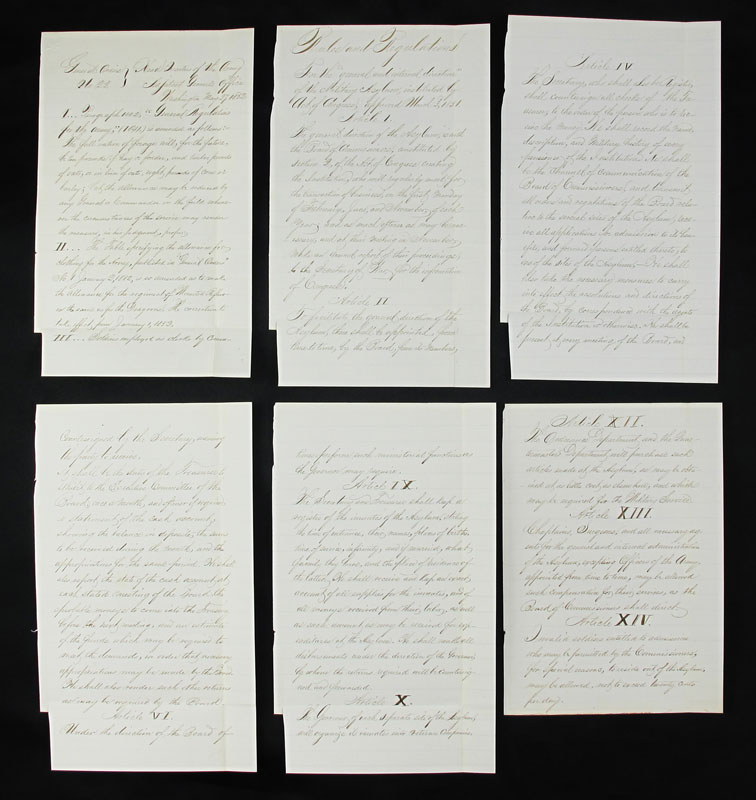 General Orders Head Quarters of the Army
No. 22 Adjutant General's Office
Washington 1853
I... Paragraph 1002, "General Regulations
for the Army," (1841) is amended as follows:
The full ration of forage will, for the future,
be ten pounds of hay or fodder, and twelve pounds
of oats, or in lieu of oats, eight pounds of corn or
barley; but the allowance may be ordered by
any General or Commander in the field where
in the circumstances of the service may render
the measure, in his judgment, proper.
II... The Table specifying the allowance for
clothing for the Army, published in "General Orders"
No. 1 January 2, 1852, is so amended as to make
the allowance for the regiment of Mounted Rifles
the same as for the Dragoons. The correction to
take effect from January 1, 1853.
III... employed as clerks by
Rules and Regulations
For the general and internal direction
of the Military Asylum, instituted by
Act of Congress, approved March 3, 1851
Article I.
The general direction of the Asylum, is with
the Board of Commissioners, constituted by
Section 2, of the Act of Congress creating
the Institution, who will regularly meet for
the transaction of business on the first Monday
of February, June, and November, of each
year; and as much oftener as may be nec-
essary, and at their meeting in November,
make an annual report of their proceedings
to the Secretary of War, for the information
of Congress.
Article II.
To facilitate the general direction of the
Asylum, there shall be appointed, from
time to time, by the Board, from its Members,
Article IV
The Secretary, who shall also be Register,
shall countersign all checks of the Trea-
surer, to the order of the person who is to re-
ceive the money. He shall record the name,
description, and Military history of every
pensioner of the Institution. He shall
be the channel of communication of the
Board of Commissioners, and transmit
all orders and regulations of the Board rela-
tive to the several sites of the Asylum; rec-
eive all applications for admission to its ben-
efits, and forward persons entitled thereto, to
one of the sites of the Asylum. He shall
also take the necessary measures to carry
into effect, the resolutions and directions of
the Board, by correspondence with the agents
of the Institution or otherwise. He shall be
present at every meeting of the Board, and
Countersigned by the Secretary, naming
the party to receive.
It shall be the duty of the Treasurer to
submit to the Executive Committee of the
Board, once a month, or oftener if required
a statement of the cash account,
showing the balance in deposite, the sums
to be received during the month, and the
appropriations for the same period. He shall
also report the state of the cash account, at
each stated meeting of the Board; the
probable moneys to come into the Treasury
before the next meeting, and an estimate
of the funds which may be required to
meet the demands, in order that necessary
appropriations may be made by the Board.
He shall also render such other returns
as may be required by the Board.
Article VI.
Under the direction of the Board of
time perform such ministerial functions as
the Governor may require.
Article IX.
The Secretary and Treasurer shall keep a
register of the inmates of the Asylum, stating
the time of entrance, their names, places of birth,
time of service, infirmity, and if married, what
family they have, and the place of residence of
the latter. He shall receive and keep an exact
account of all supplies for the inmates, and of
all moneys received from their labor, as well
as such moneys as may be received for exp-
enditures at the Asylum. He shall make all
disbursements under the direction of the Governor,
by whom the returns required will be counter-
signed and forwarded.
Article X.
The Governor of each separate site of the Asylum,
will organize its inmates into Veteran Companies
Article XII.
The Ordnance Department, and the Com-
missariat Department, will purchase such
articles made at the Asylum, as may be obtain-
ed at as little cost as elsewhere, and which
may be required for the Military Service.
Article XIII.
Chaplains, Surgeons, and all necessary ag-
ents for the general and internal administration
of the Asylum, excepting Officers of the Army,
appointed from time to time, may be allowed
such compensation for their services, as the
Board of Commissioners shall direct.
Article XIV.
Invalid soldiers entitled to admission
who may be permitted by the Commissioners,
for special reasons, to reside out of the Asylum,
may be allowed, not to exceed twenty cents
per day.